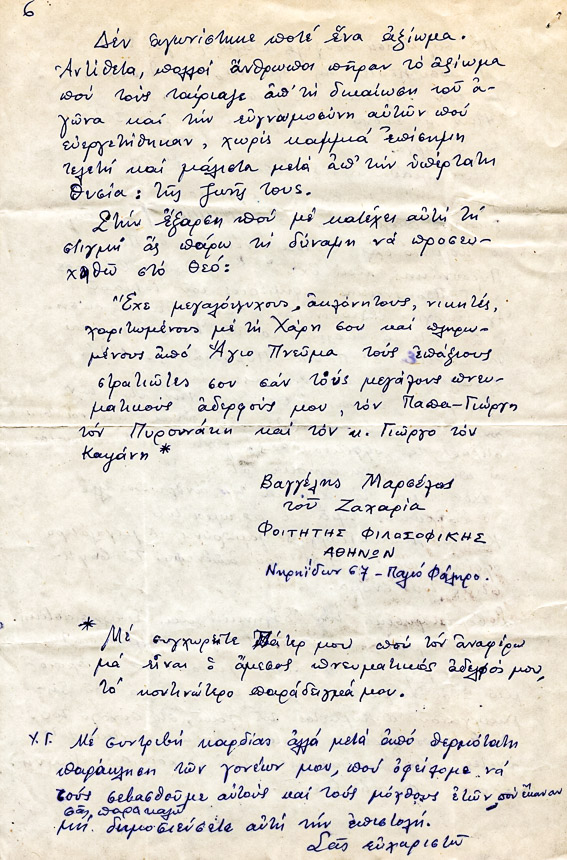 6
Δέν αγωνίστηκε ποτέ ἕνα ἀξίωμα.
Ἀντίθετα, πολλοί ἄνθρωποι πῆραν τό ἀξίωμα
πού τούς ταίριαζε ἀπ' τή δικαίωση τοῦ ἀ-
γῶνα καί τήν εὐγνωμοσύνη αὐτῶν πού
εὐεργετήθηκαν, χωρίς καμμιά ἐπίσημη
τελετή καί μάλιστα μετά ἀπ' τήν ὑπέρτατη
θυσία: τῆς ζωῆς τους.
Στήν ἔξαρση πού μέ κατέχει αὐτή τή
στιγμή ἄς πάρω τή δύναμη νά προσευ-
χηθῶ στό Θεό:
"Ἔχε μεγαλόψυχους, ἀκλόνητους, νικητές,
χαριτωμένους μέ τή Χάρη σου καί πληρω-
μένους ἀπό Ἅγιο Πνεῦμα τούς ἐπάξιους
στρατιῶτες σου σάν τούς μεγάλους πνευ-
ματικούς ἀδερφούς μου, τόν Παπα-Γιώργη
τόν Πυρουνάκη καί τόν κ. Γιῶργο τόν
Καψάνη *
Βαγγέλης Μαρσέλος
τοῦ Ζαχαρία
ΦΟΙΤΗΤΗΣ ΦΙΛΟΣΟΦΙΚΗΣ
ΑΘΗΝΩΝ
Νηρηΐδων 67 - Παλιό Φάληρο.
* Μέ συγχωρεῖτε Πάτερ μου πού τόν ἀναφέρω
μά εἶναι ὁ ἄμεσος πνευματικός ἀδελφός μου,
τό κοντινώτερο παράδειγμά μου.
Υ.Γ. Μέ συντριβή καρδίας ἀλλά μετά ἀπό θερμότατη
παράκληση τῶν γονέων μου, πού ὀφείλομε νά
τούς σεβασθοῦμε αὐτούς καί τούς μόχθους ἐτῶν πού ἔκαναν
σᾶς παρακαλῶ
μή δημοσιεύσετε αὐτή τήν ἐπιστολή.
Σᾶς εὐχαριστῶ